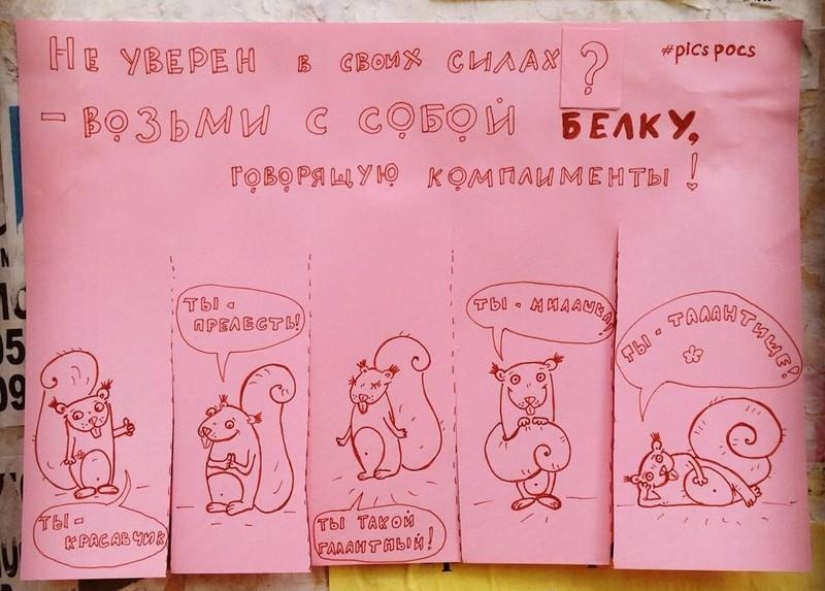 Не уверен в своих силах?
#picspocs
- возьми с собой БЕЛКУ,
говорящую комплименты!
Ты -
красавчик
Ты -
прелесть!
Ты такой
галантный!
Ты - милашка!
Ты - талантище!